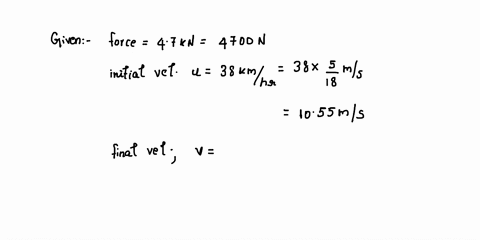 Given:- force = 4.7 kN = 4700 N
initial vel. u = 38 km/hr = 38 × 5/18 m/s
= 10.55 m/s
final vel., v =